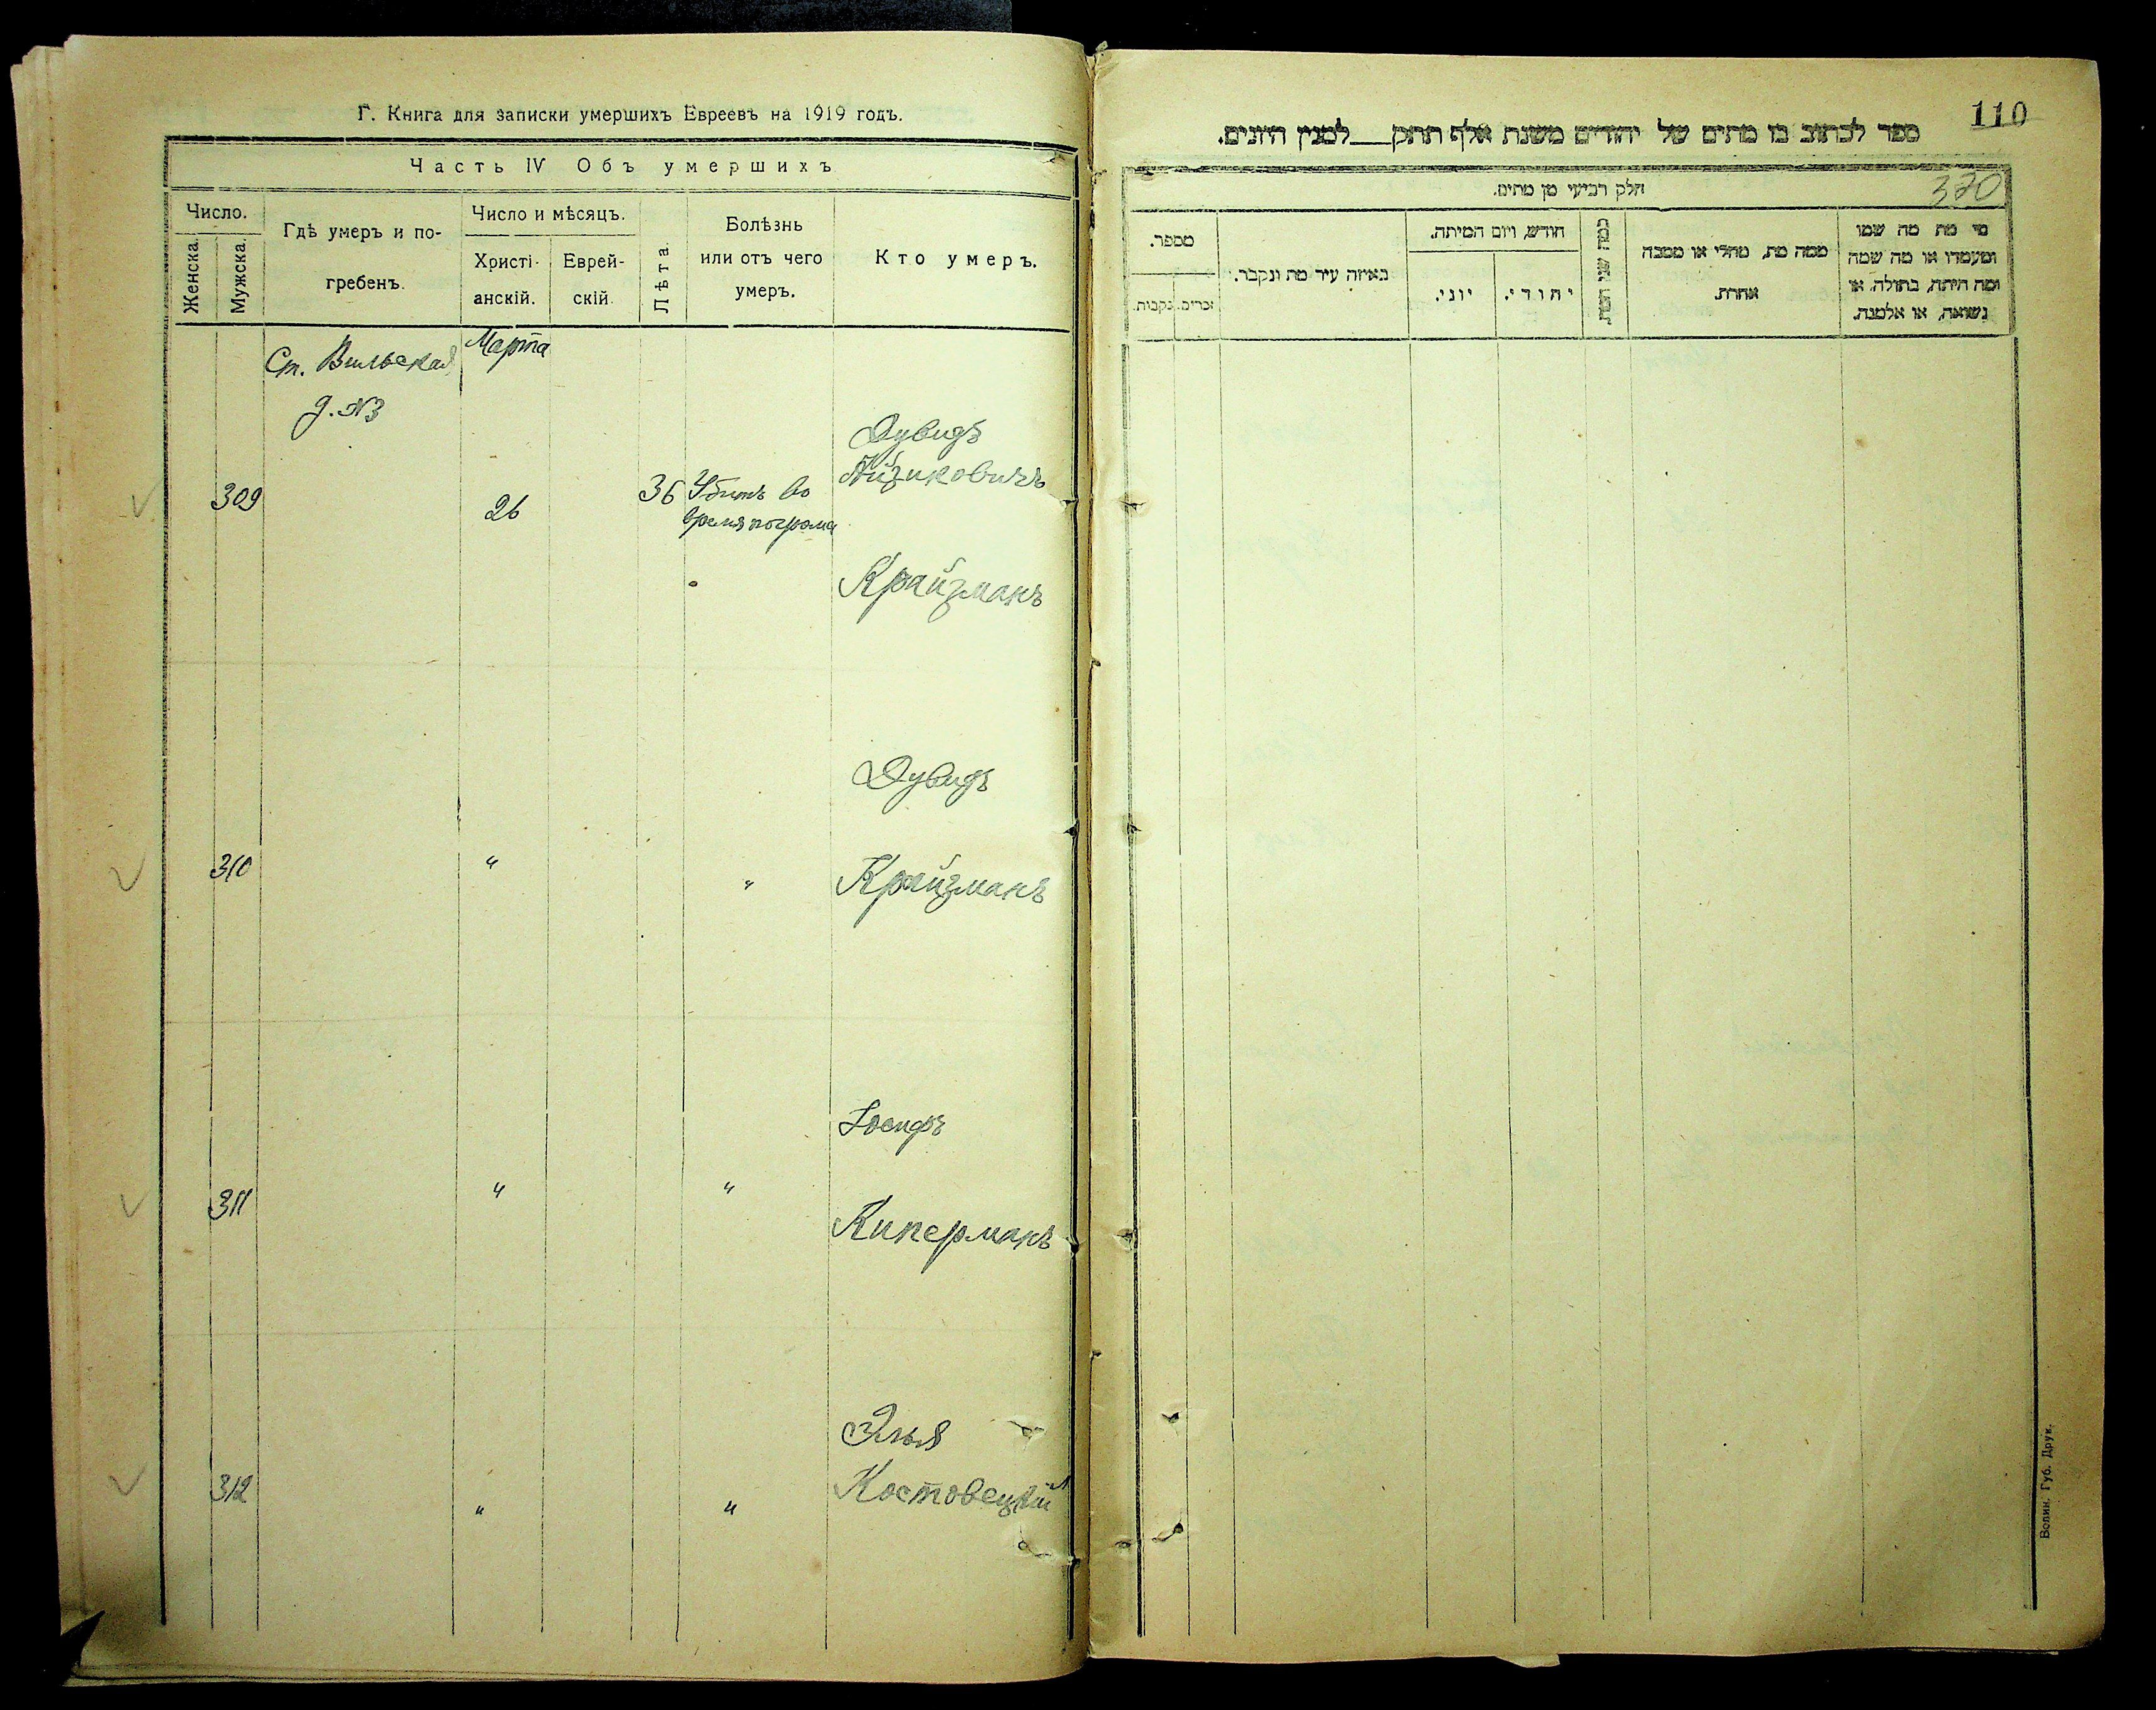 Г. Книга для записки умершихъ Евреевъ на 1919 годъ.
Часть IV Объ умершихъ
Число.
Женска.
Мужска.
Гдѣ умеръ и по-
гребенъ.
Число и мѣсяцъ.
Христі-
анскій.
Еврей-
скій.
Лѣта
Болѣзнь
или отъ чего
умеръ.
Кто умеръ.
Ст. Вильская
д. №3
Марта
309
26
36
Убитъ во
время погрома
Дувидъ
Айзиковичъ
Крайзманъ
310
"
"
Дувидъ
Крайзманъ
311
"
"
Іосифъ
Киперманъ
312
"
"
Элья
Костовецкій
110
ספר לכתוב בו מתים של יהודים משנת אלף תתק___למנין היונים.
370
חלק רביעי מן מתים.
מספר.
זכרים.
נקבות.
באיזה עיר מת ונקבר.
חודש, ויום המיתה.
יוני.
יהודי.
כמה שני המת.
ממה מת, מחלי או מסבה
אחרת.
מי מת מה שמו
ומעמדו או מה שמה
ומה היתה, בתולה, או
נשואה, או אלמנה.
Волин. Губ. Друк.